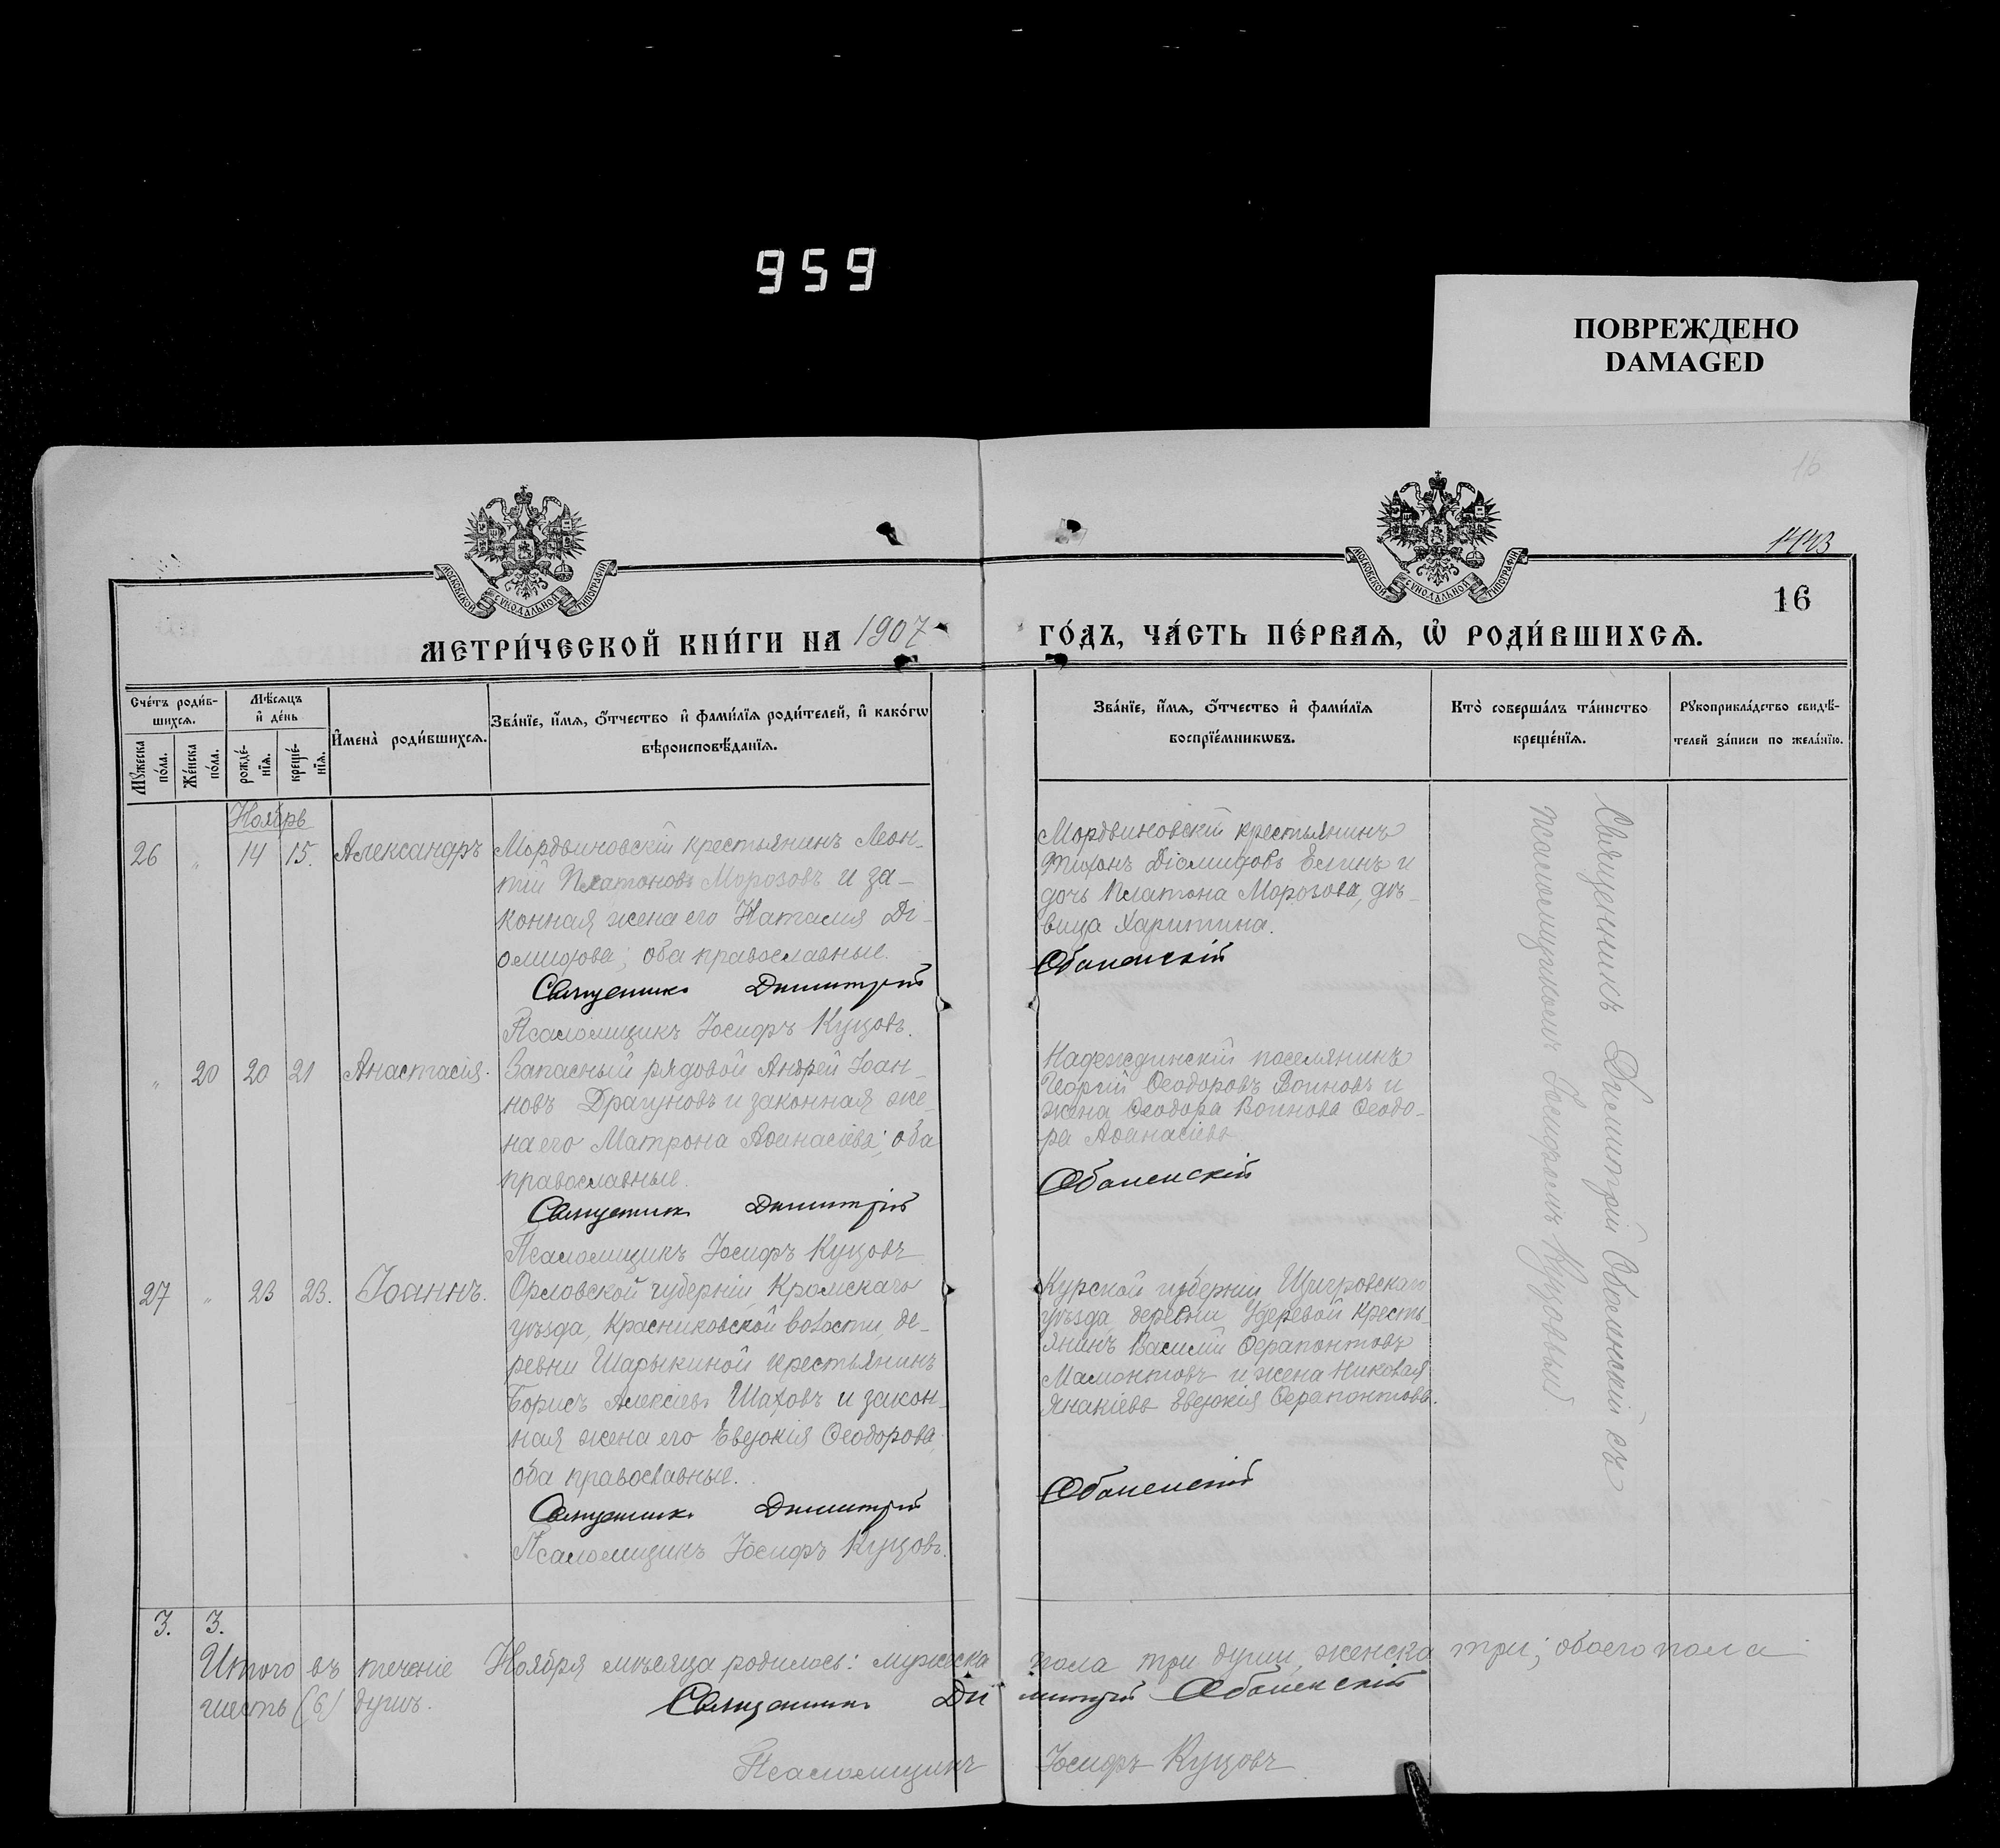 959
ПОВРЕЖДЕНО
DAMAGED
16
1443
16
МОСКОВСКОЙ СѴНОДАЛЬНОЙ ТИПОГРАФІИ
МОСКОВСКОЙ СѴНОДАЛЬНОЙ ТИПОГРАФІИ
МЕТРИ́ЧЕСКОЙ КНИ́ГИ НА 1907 ГО́ДЪ, ЧА́СТЬ ПЕ́РВАѦ, Ѡ҆ РОДИ́ВШИХСѦ.
Сче́тъ роди́в-
шихсѧ.
Мꙋ́жеска по́ла.
Же́нска по́ла.
Мѣ́сѧцъ и҆ де́нь
рожде́-
нїѧ.
креще́-
нїѧ.
И҆мена̀ роди́вшихсѧ.
Зва́нїе, и҆́мѧ, ѻ҆́тчество и҆ фами́лїѧ роди́телей, и҆ како́гѡ
вѣроисповѣ́данїѧ.
Зва́нїе, и҆́мѧ, ѻ҆́тчество и҆ фами́лїѧ
воспрїе́мникѡвъ.
Кто̀ соверша́лъ та́инство
креще́нїѧ.
Рꙋкоприкла́дство свидѣ́-
телей за́писи по жела́нїю.
Ноябрь
26 " 14 15. Александръ
Мордвиновскій крестьянинъ Леон-
тій Платоновъ Морозовъ и за-
конная жена его Наталия Ді-
омидова; оба православные.
Священникъ Димитрій Оболенскій
Псаломщикъ Іосифъ Куцовъ.
Мордвиновскій крестьянинъ
Тихонъ Діомидовъ Елинъ и
дочь Платона Морозова, дѣ-
вица Харитина.
" 20 20 21 Анастасія.
Запасный рядовой Андрей Іоан-
новъ Драгуновъ и законная же-
на его Матрона Аѳанасіева; оба
православные.
Священникъ Димитрій Оболенскій
Псаломщикъ Іосифъ Куцовъ
Надеждинскій поселянинъ
Георгій Ѳеодоровъ Воиновъ и
жена Ѳеодора Воинова Ѳеодо-
ра Аѳанасіева
27 " 23 23. Іоаннъ.
Орловской губерніи, Кромскаго
уѣзда, Красниковской волости, де-
ревни Шарыкиной крестьянинъ
Борисъ Алексіевъ Шаховъ и закон-
ная жена его Евдокія Ѳеодорова,
оба православные.
Священникъ Димитрій Оболенскій
Псаломщикъ Іосифъ Куцовъ.
Курской губерніи, Щигровскаго
уѣзда, деревни Удеревой кресть-
янинъ Василій Ѳерапонтовъ
Мамонтовъ и жена Николая
Ананіева Евдокія Ѳерапонтова.
Священникъ Димитрій Оболенскій съ
псаломщикомъ Іосифомъ Куцовымъ
3. 3.
Итого въ теченіе Ноября мѣсяца родилось: мужеска пола три души, женска три; обоего пола
шесть (6) душъ.
Священникъ Димитрій Оболенскій
Псаломщикъ Іосифъ Куцовъ